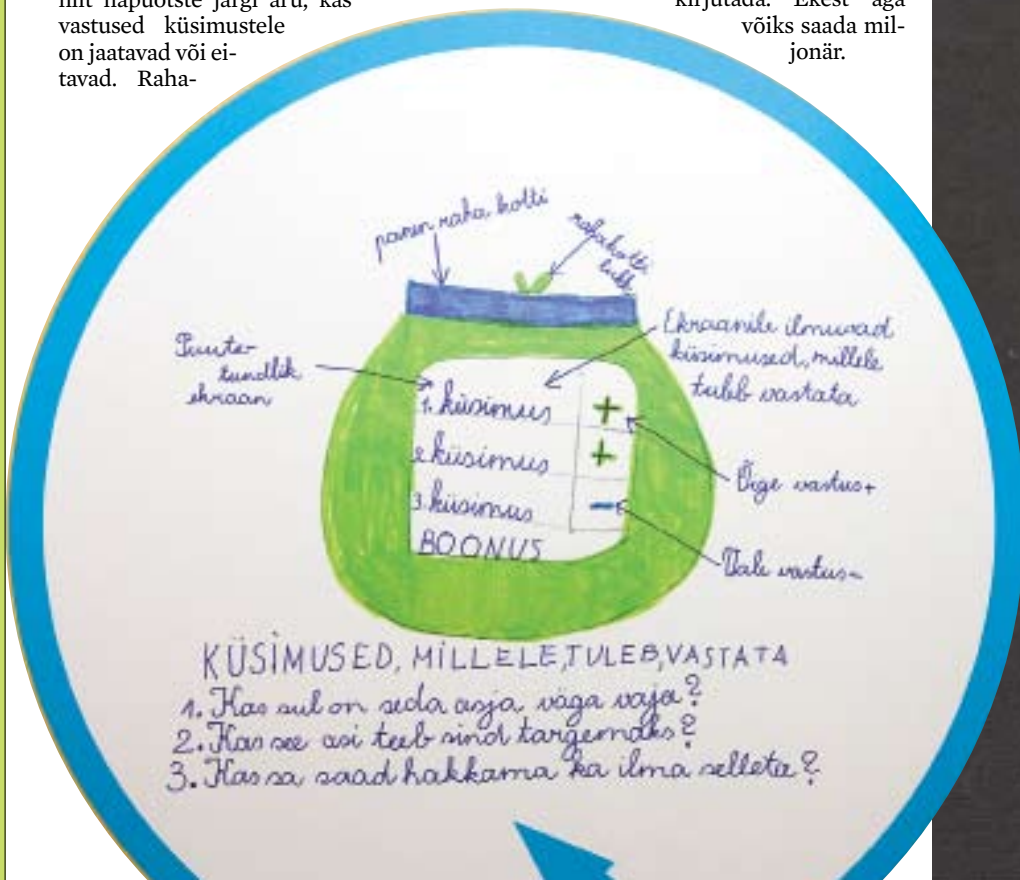 niit näpuotste järgi aru, kas
vastused küsimustele
on jaatavad või ei-
tavad. Raha-
kirjutada. Ekest aga
võiks saada mil-
jonär.
panen raha kotti
rahakotti
lukk
Puute-
tundlik
ekraan
Ekraanile ilmuvad
küsimused, millele
tuleb vastata
1. küsimus +
2 küsimus +
3. küsimus -
BOONUS
Õige vastus+
Vale vastus-
KÜSIMUSED, MILLELE,TULEB,VASTATA
1. Kas sul on seda asja väga vaja?
2. Kas see asi teeb sind targemaks?
3. Kas sa saad hakkama ka ilma selleta?